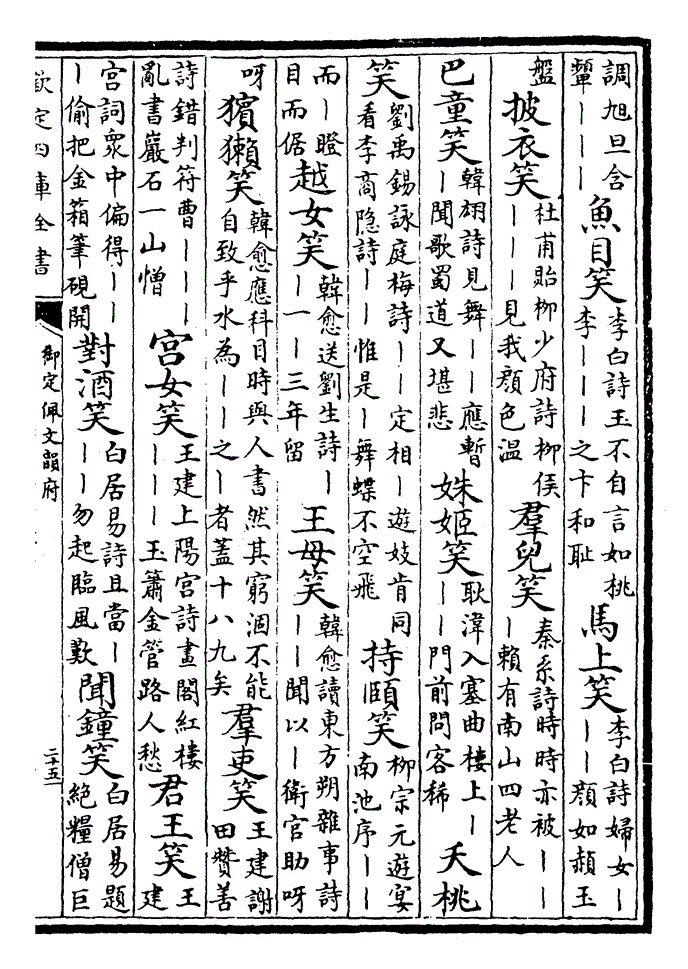 調旭旦含顰｜｜｜魚目笑李白詩玉不自言如桃李｜｜｜之卞和耻馬上笑李白詩婦女｜｜｜顔如赬玉
盤披衣笑杜甫貽柳少府詩柳侯｜｜｜見我顔色温羣兒笑秦系詩時時亦被｜｜｜賴有南山四老人
巴童笑韓翃詩見舞｜｜應暫｜聞歌蜀道又堪悲姝姬笑耿湋入塞曲樓上｜｜｜門前問客稀夭桃
笑劉禹錫詠庭梅詩｜｜定相｜遊妓肯同看李商隐詩｜｜｜惟是｜舞蝶不空飛持頤笑柳宗元遊宴南池序｜｜
而｜瞪目而倨越女笑韓愈送劉生詩｜｜一｜三年留王母笑韓愈讀東方朔雜事詩｜｜聞以｜衛官助呀
呀獱獺笑韓愈應科目時與人書然其窮涸不能自致乎水為｜｜之｜者蓋十八九矣羣吏笑王建謝田贊善
詩錯判符曹｜｜｜亂書巖石一山憎宫女笑王建上陽宫詩畫閣紅樓｜｜｜玉簫金管路人愁君王笑王建
宫詞衆中偏得｜｜｜偷把金箱筆硯開對酒笑白居易詩且當｜｜｜勿起臨風歎聞鐘笑白居易題絶糧僧巨
欽定四庫全書
御定佩文韻府
二十五